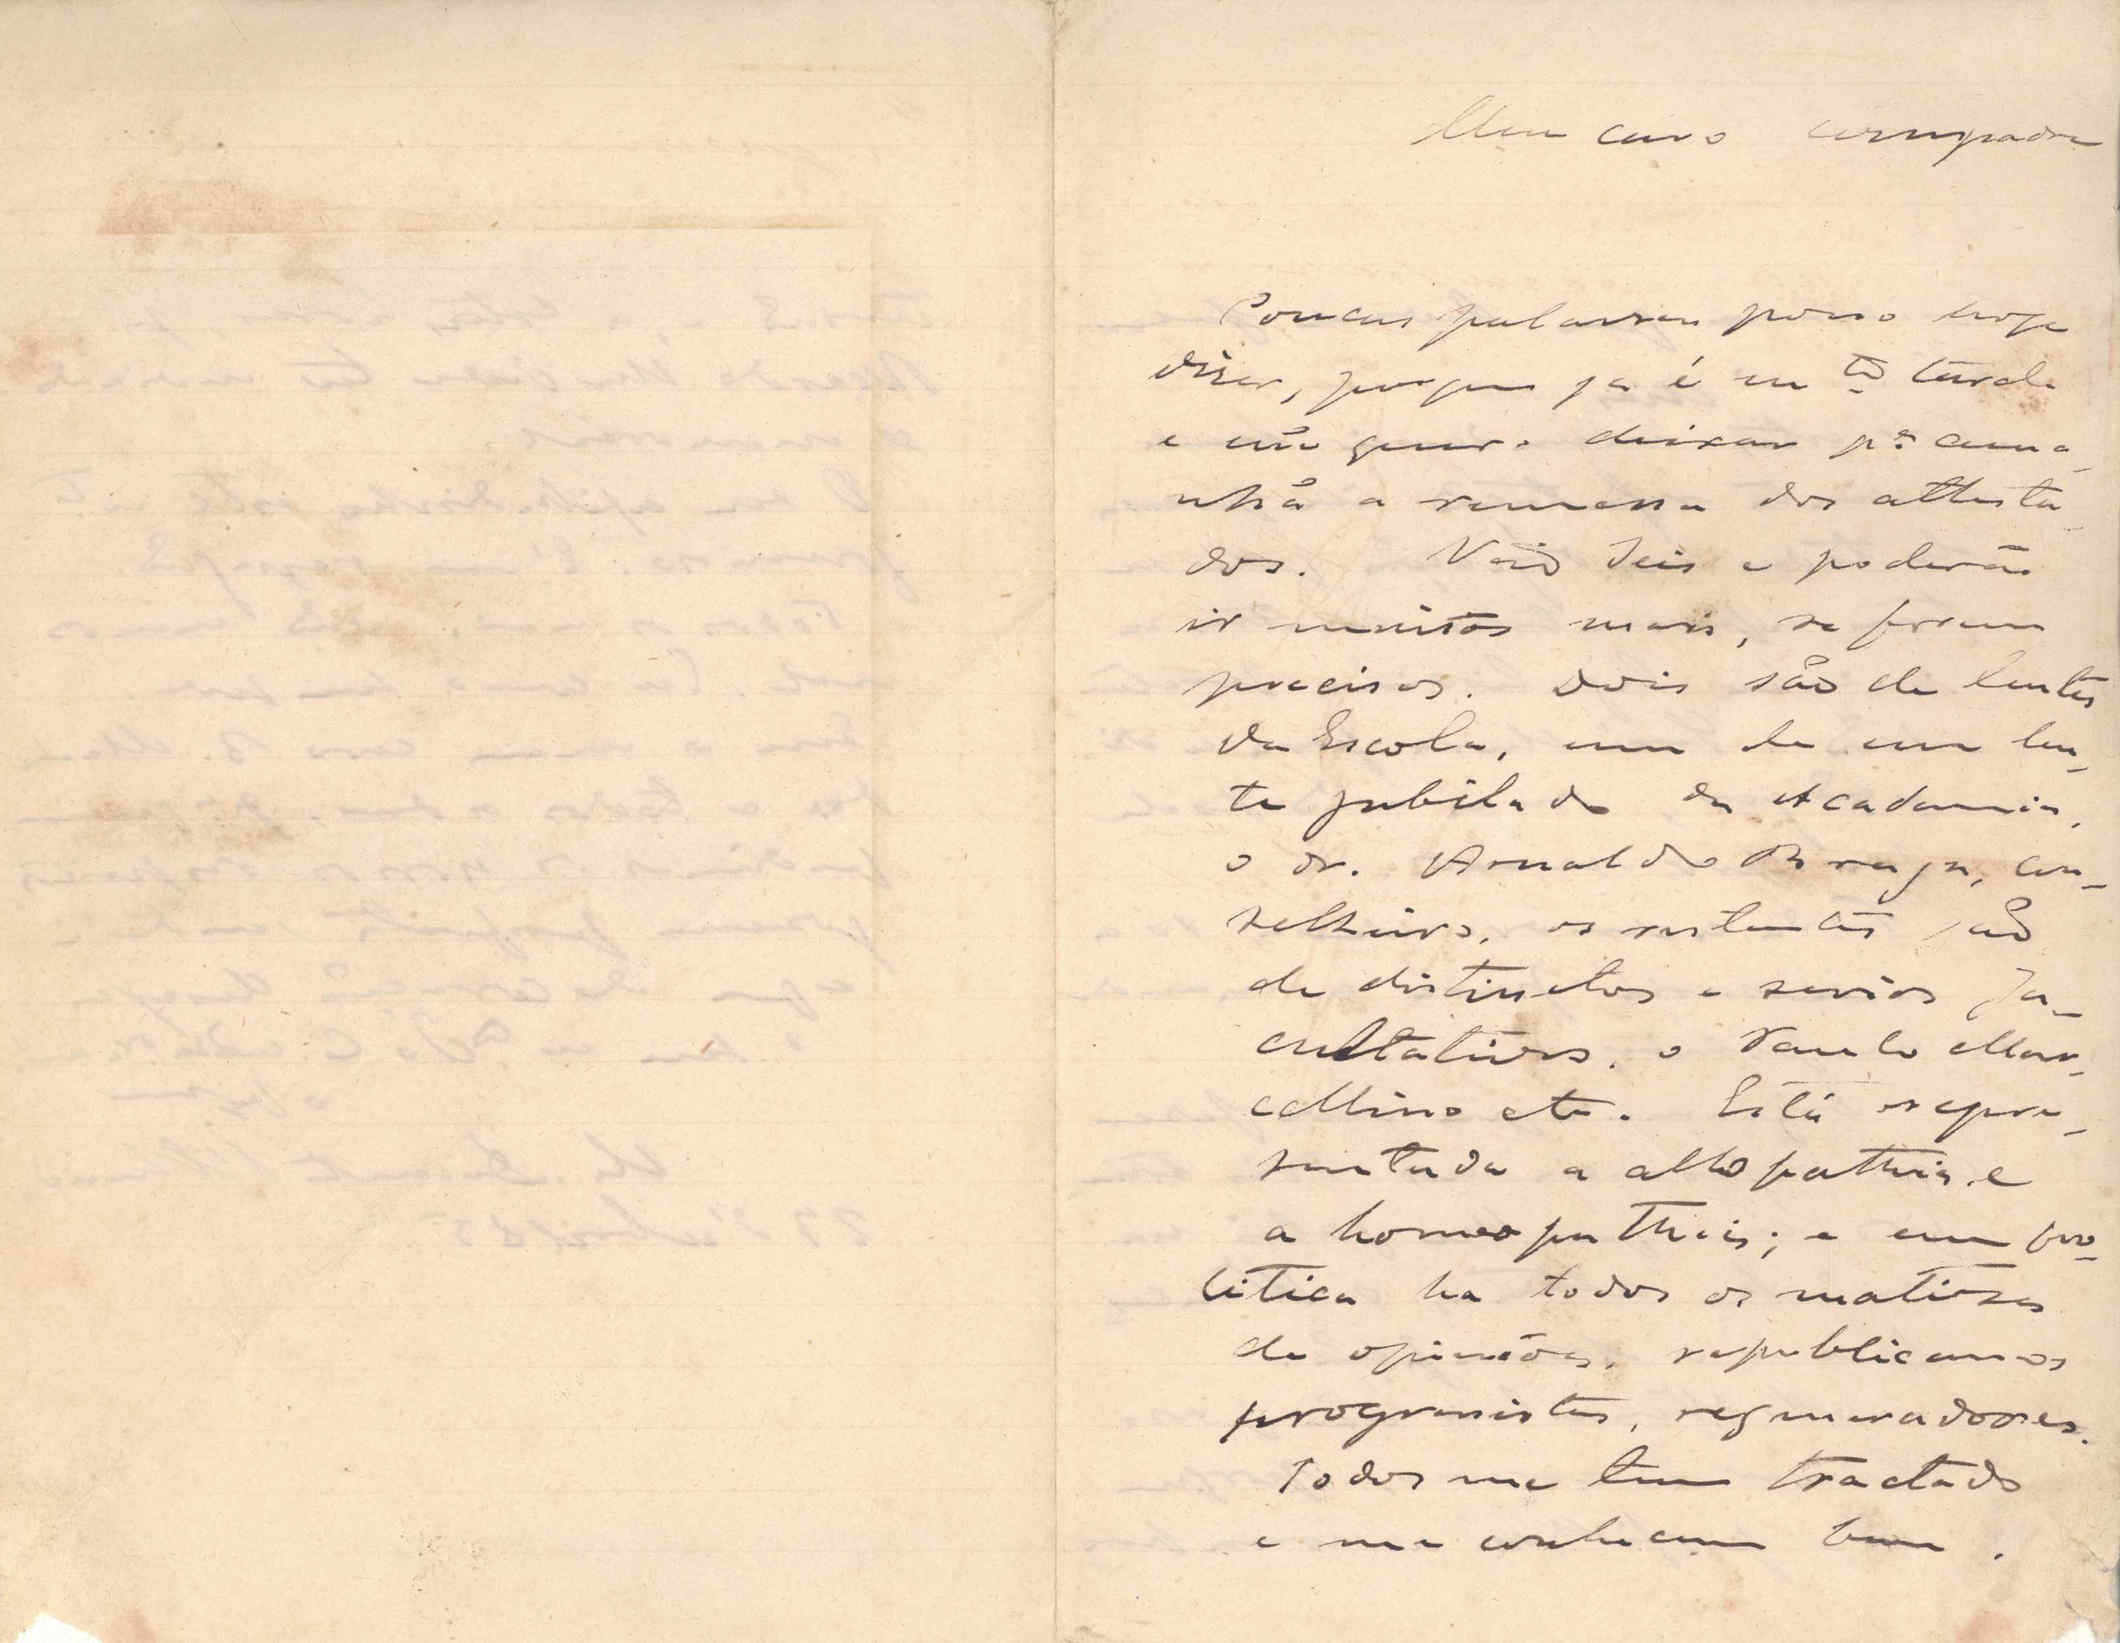 Meu caro compadre
Poucas palavras posso hoje
dizer, porque ja é m to tarde
e não quero deixar pa ama-
nhã a remessa dos attesta-
dos. Vão seis e poderão
ir muitos mais, se forem
precisos. Dois são de lentes
da Escola, um de um len-
te jubilado da Academia,
o dr. Arnaldo Braga, con-
selheiro, os restantes são
de distinctos e serios fa-
cultativos, o Paulo Mar-
cellino etc. Está repre-
sentada a allopathia e
a homeopathia; e em po-
litica ha todos os matizes
de opiniões, republicanos
progressistas, regeneradores.
Todos me tem tractado
e me conhecem bem.